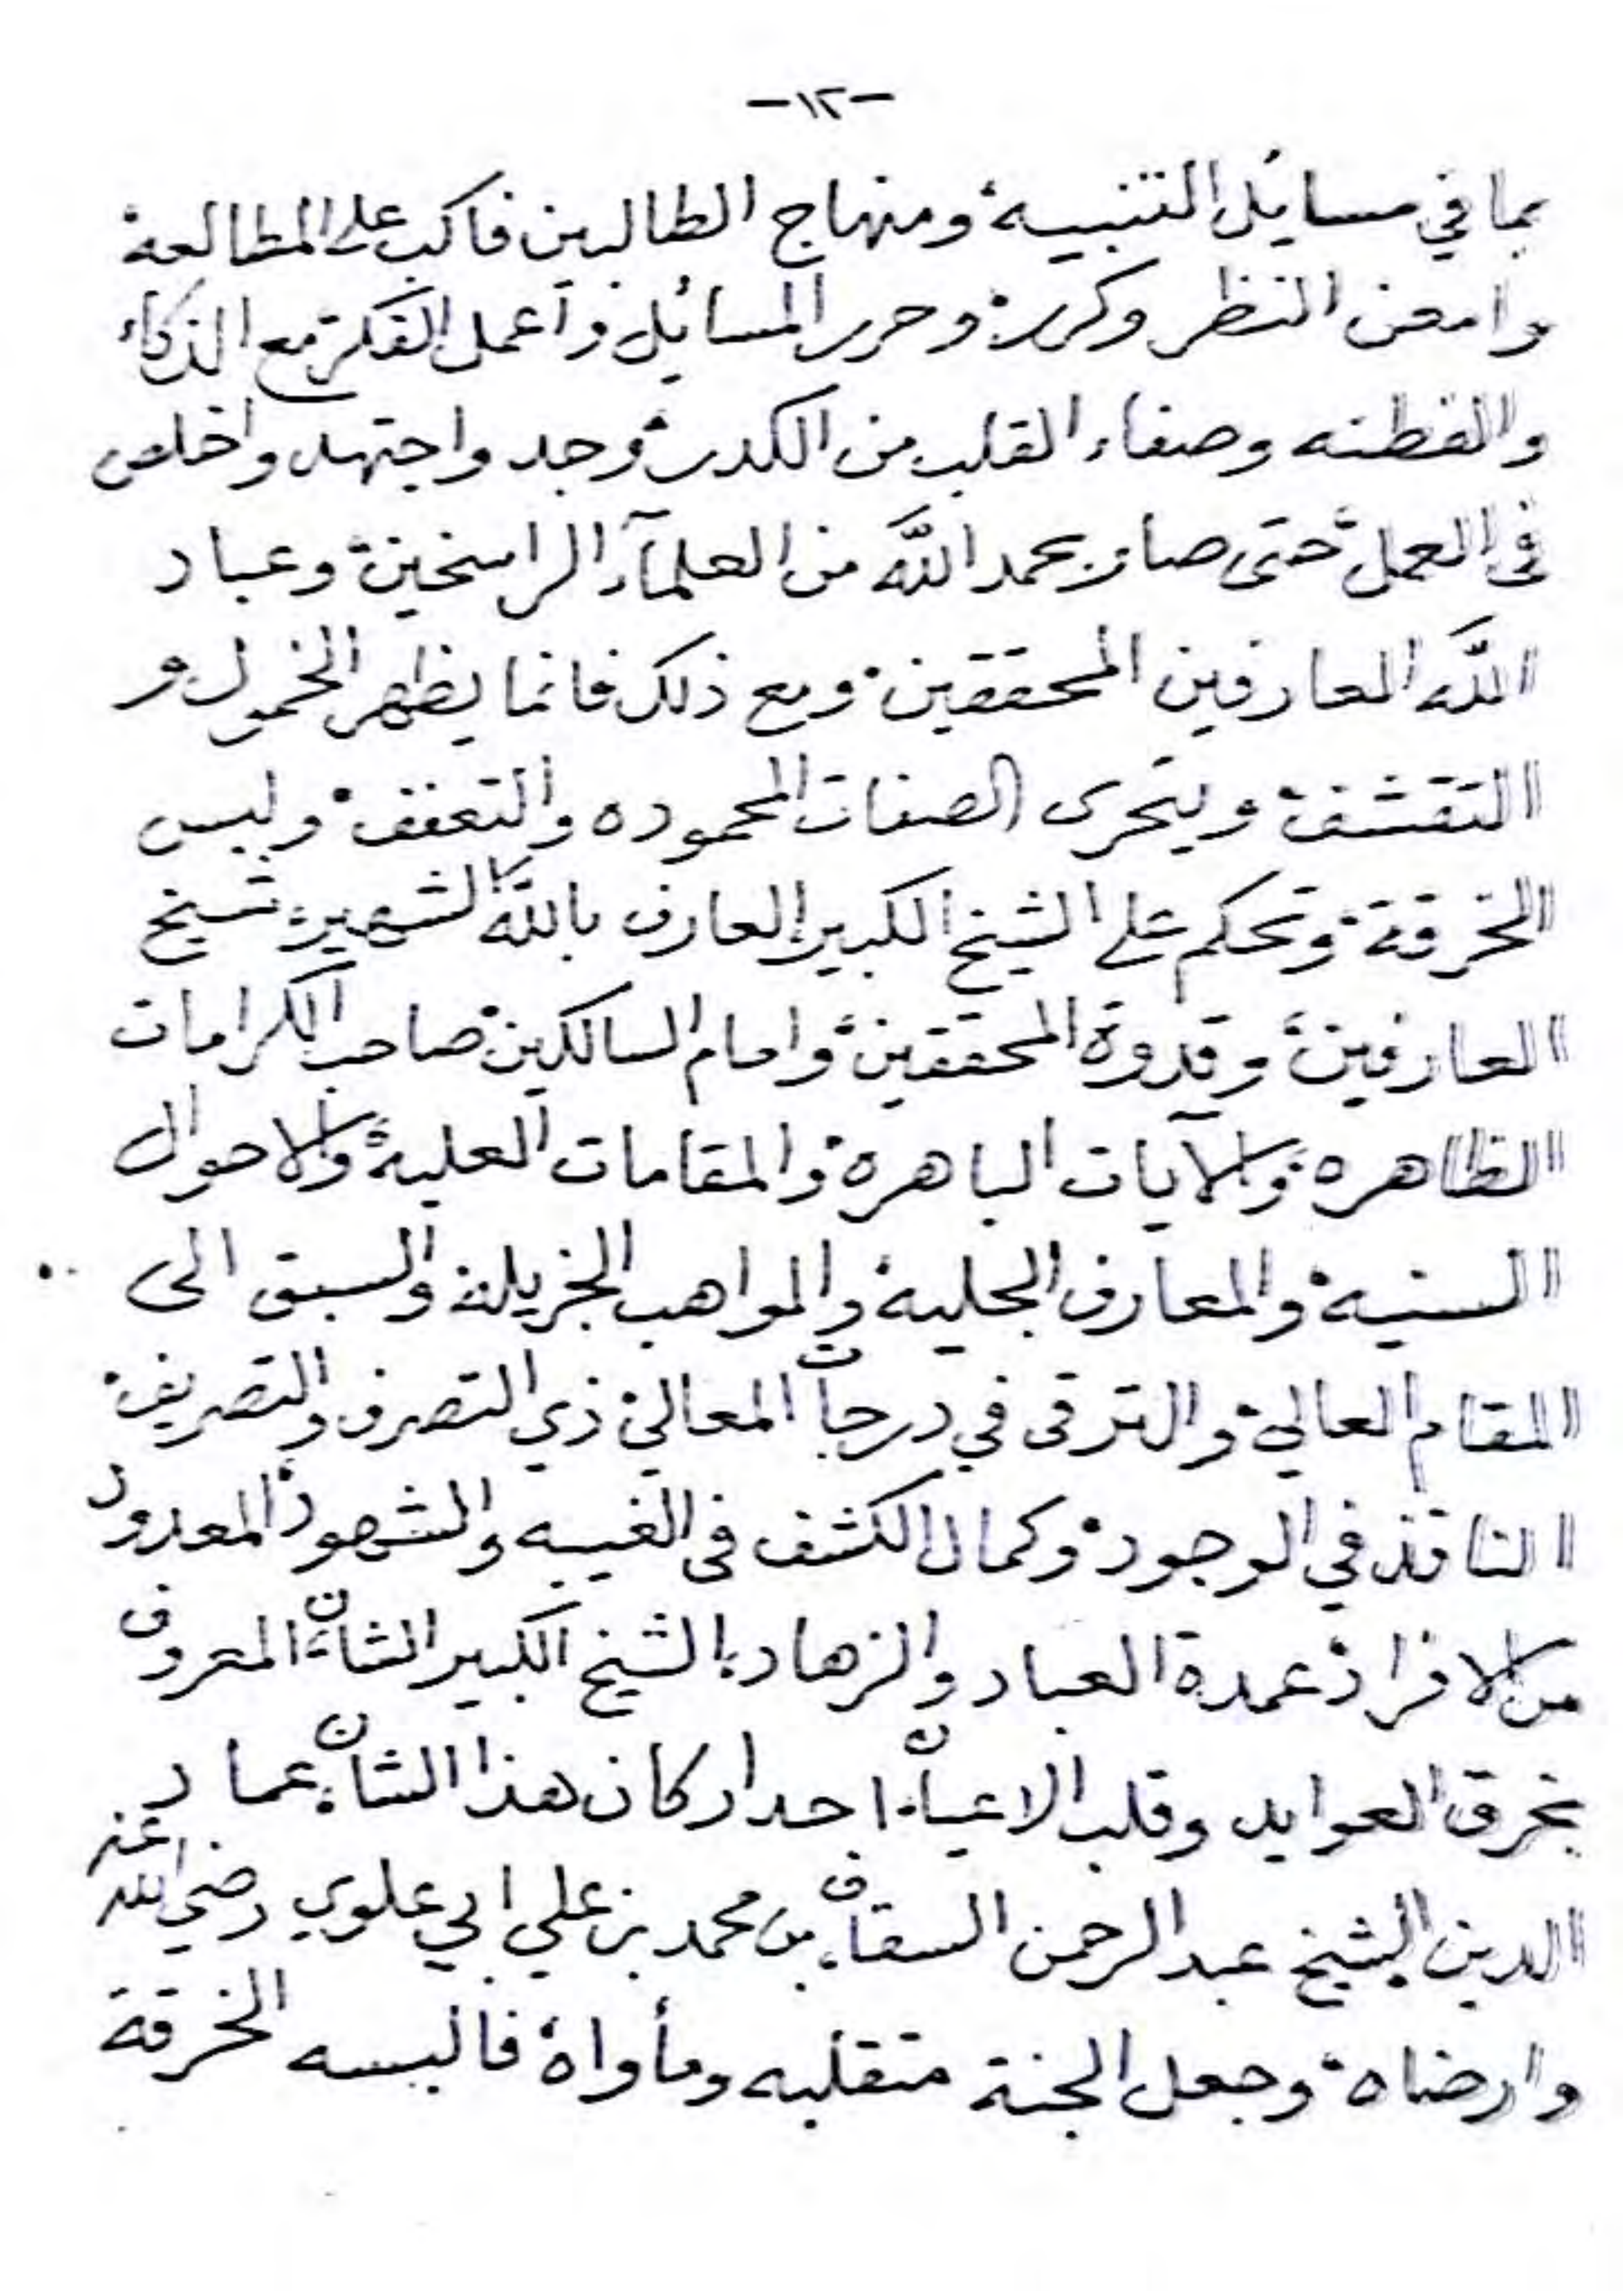 -١٢-
بما في مسايُل التنبيه ومنهاج الطالبين فاكب على المطالعة
وامعن النظر وكرر وحرر المسائل واعمل الفكرة مع الذكاء
والفطنه وصفاء القلب من الكدر وجد واجتهد واخلص
فى العمل حتى صار بحمد الله من العلمآء الراسخين وعباد
الله العارفين المحققين ومع ذلك فانما يظهر الخمول و
التقشف ويتحرى الصفات المحموده والتعفف ولبس
الخرقة وتحكم على الشيخ الكبير العارف بالله الشهير شيخ
العارفين وقدوة المحققين وامام السالكين صاحب الكرامات
الظاهره والآيات الباهرة والمقامات العلية والاحوال
السنية والمعارف الجلية والمواهب الجزيلة والسبق الى
المقام العالي والترقى في درجات المعالي ذي التصرف والتصريف
النافذ في الوجود وكمال الكشف فى الغيبه والشهود المعدود
من الافراد عمدة العباد والزهاد الشيخ الكبير الشان المعروف
بخرق العوايد وقلب الاعيان احد اركان هذا الشان عماد
الدين الشيخ عبد الرحمن السقاف بن محمد بن علي ابي علوي رضي الله عنه
وارضاه وجعل الجنة متقلبه ومأواه فالبسه الخرقة